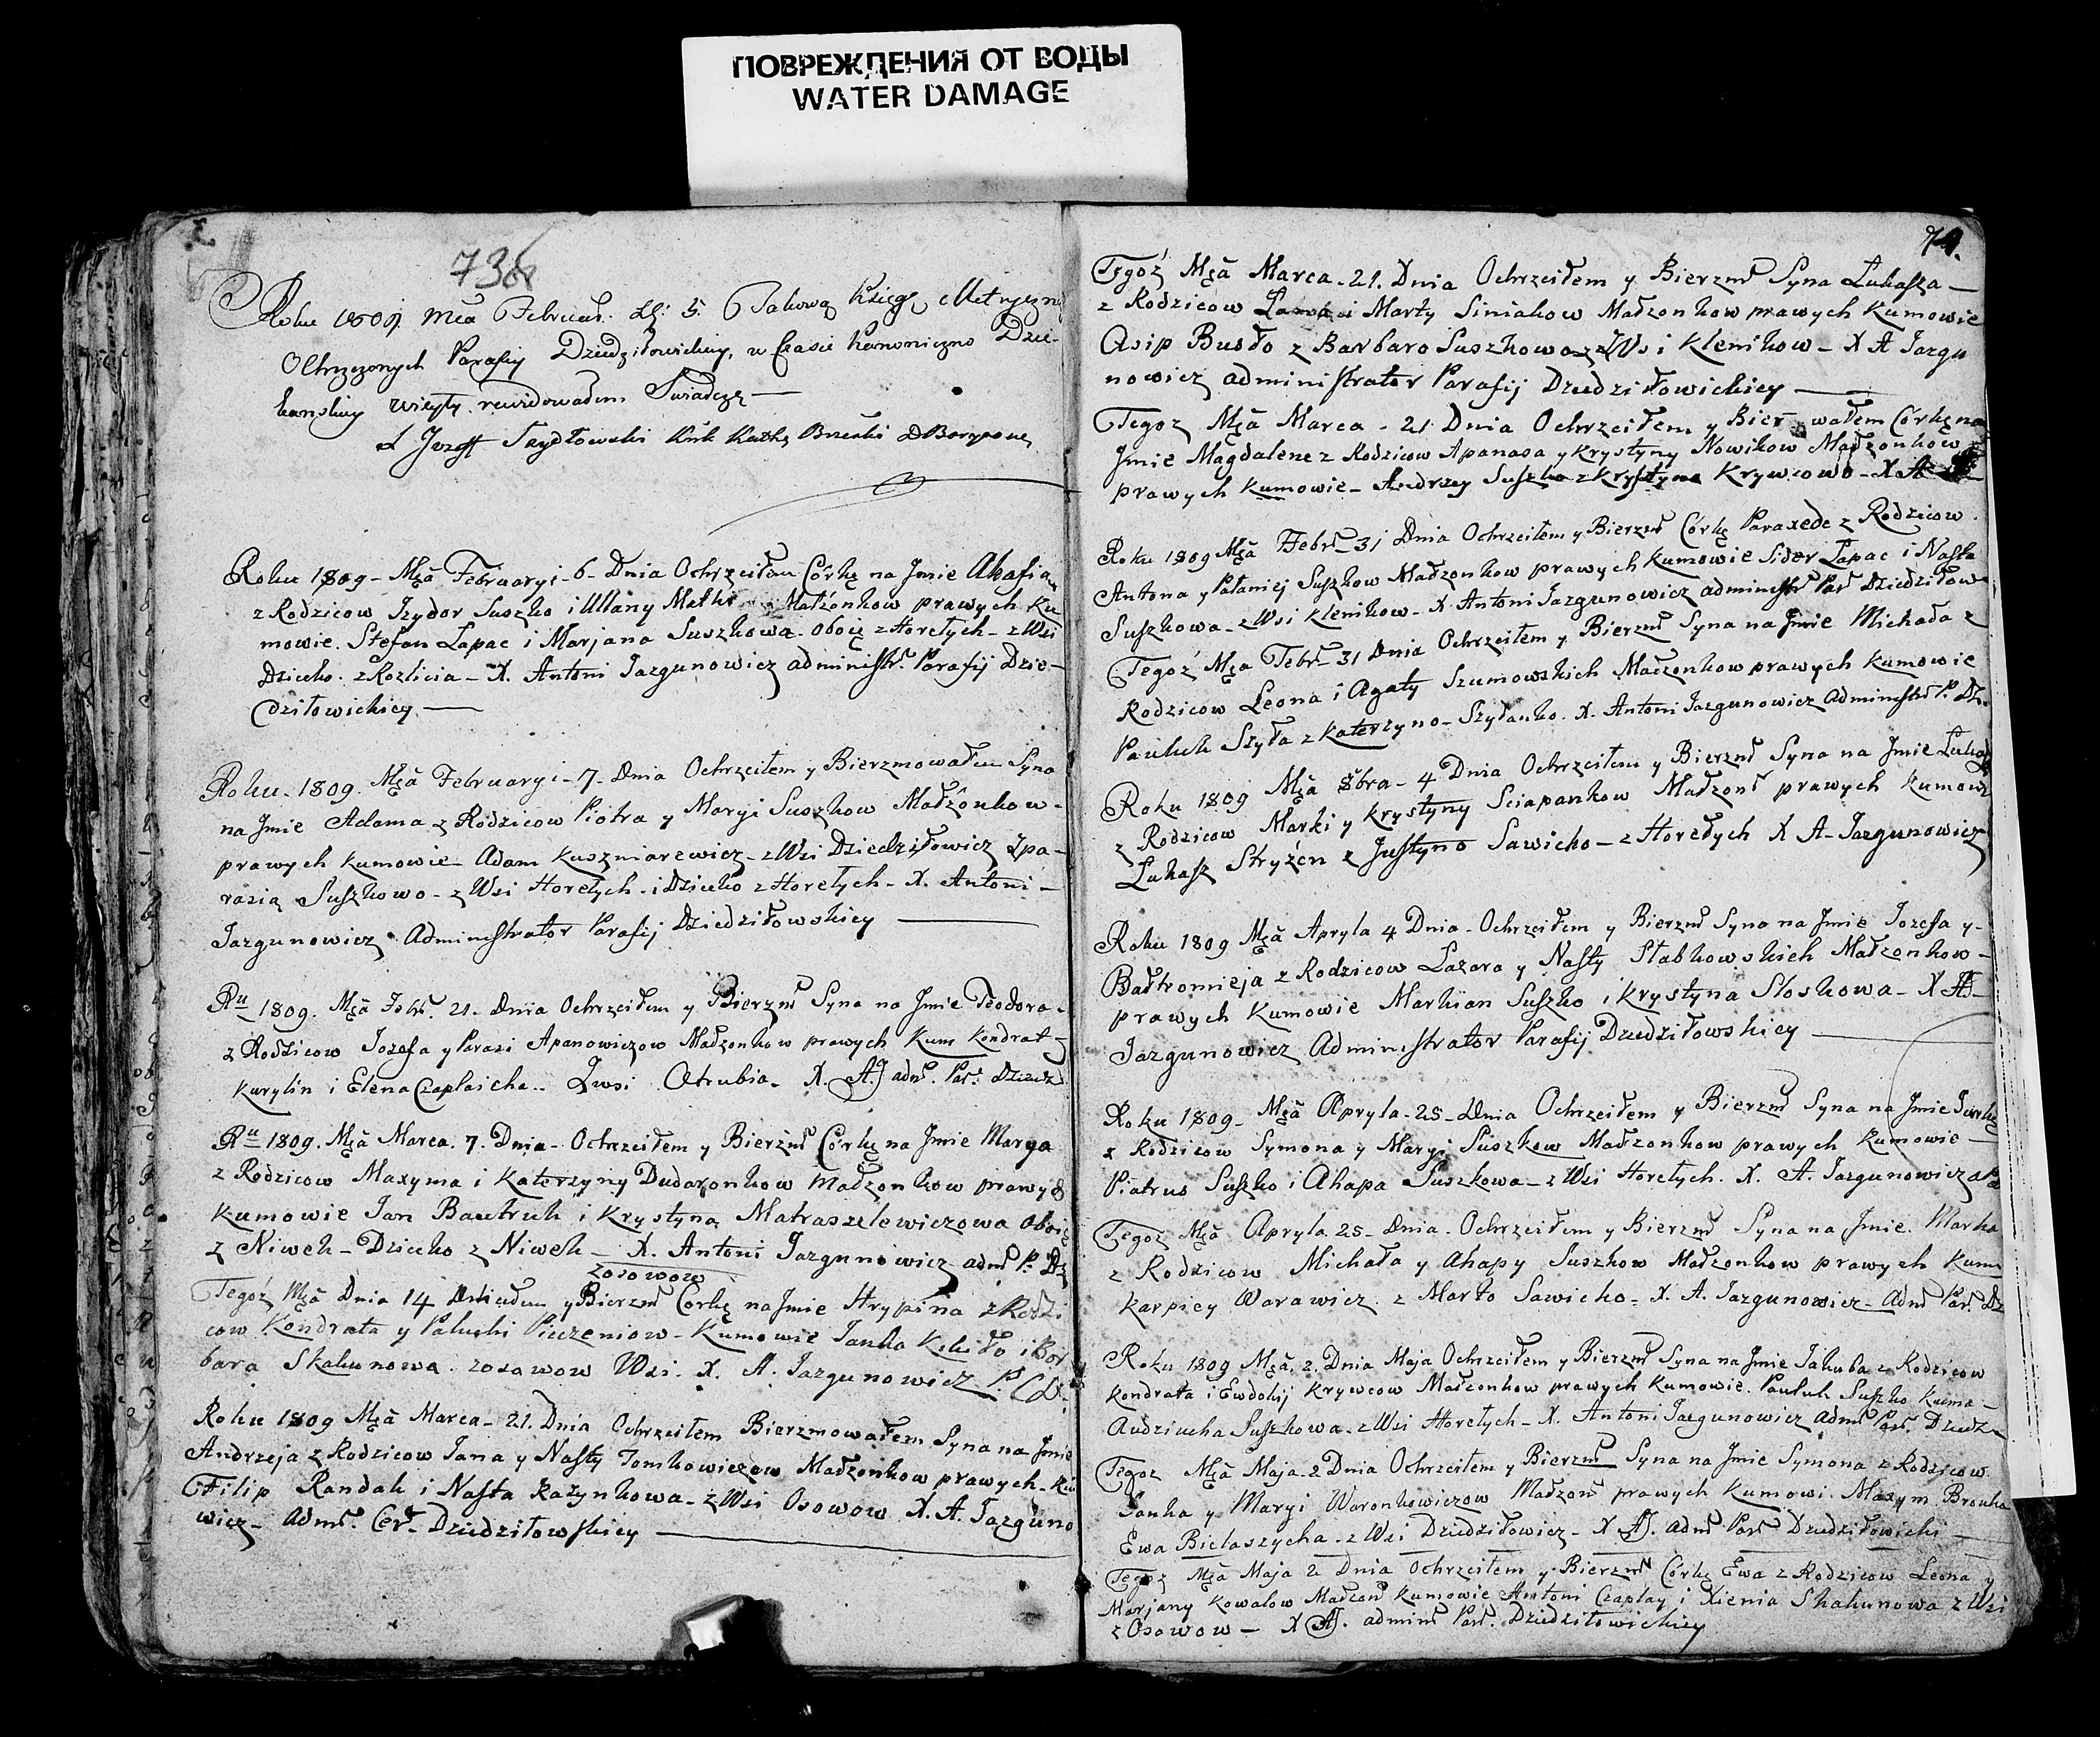 ПОВРЕЖДЕНИЯ ОТ ВОДЫ
WATER DAMAGE
73
Roku 1809. Mca Februar. 5. Takową Księgę Metryczną
Ochrzczonych Parafij Dziedziłowickiey, w Czasie Kanoniczno Dzie-
kanskiey Wizyty rewidowałem Swiadczę —
Roku 1809 - Mcă Februaryi - 6 - Dnia Ochrzciłem Córkę na Jmie Ahafia
z Rodzicow Izydor Suszko i Ullany Małżonkow prawych Ku
mowie. Stefan Łapac i Marjana Suszkowa. oboię z Horełych - z Wsi
Dziecko. z Rozlicia - X. Antoni Jazgunowicz administr. Parafij Dzie-
dziłowickiey —
Roku. 1809. Mcă Februaryi - 7 - Dnia Ochrzciłem y Bierzmowałem Syna
na Jmie Adama z Rodzicow Piotra y Maryi Suszkow Małżonkow -
prawych kumowie - Adam Kuszmiarewicz - z Wsi Dziedziłowicz z Pa-
rasią Suszkowo - z Wsi Horełych - i Dziecko z Horełych - X. Antoni -
Jazgunowicz Administrator Parafij Dziedziłowskiey —
Ru 1809. Mcă Febr. 21. Dnia Ochrzciłem y Bierzm Syna na Jmie Teodora -
z Rodzicow Jozefa y Parasi Apanowiczow Małzonkow prawych Kum Kondrat
Kurylin i Elena Czaplaicha.. Zwsi Otrubia. X. A J adm. Par. Dziedz
Ru 1809. Mcă Marca. 7. Dnia - Ochrzciłem y Bierzm Córkę na Jmie Marya
z Rodzicow Maxyma i Katerzyny Dudaronkow Małzonkow prawych
Kumowie Jan Bautruk i Krystyna Matraszelewiczowa oboię
z Niwek - Dziecko z Niwek - X. Antoni Jazgunowicz adm P. Dz
zosowow
Tegoż Mcă Dnia 14 y Bierzm Corkę na Jmie Hrypina z Rodzi
cow Kondrata y Pałuchi Pieczeniow - Kumowie Janka i Bar
bara Skakunowa zosowow Wsi. X. A. Jazgunowicz P. D.
Roku 1809 Mcă Marca - 21. Dnia Ochrzciłem Bierzmowałem Syna na Jmie
Andrzeja z Rodzicow Jana y Nasty Tomkowiczow Małzonkow prawych - Ku
Filip Randak i Nasta Każynkowa - z Wsi Osowow X. A. Jazguno
wicz - Adm. Cer. Dziedziłowskiey —
Tegoż Mcă Marca - 21. Dnia Ochrzciłem y Bierzm Syna Łukasza —
z Rodzicow i Marty Siniakow Małzonkow prawych Kumowie
Asip Busło z Barbaro Suszkowo z Wsi Klenikow - X A Jazgu
nowicz administrator Parafij Dziedziłowickiey —
Tegoz Mcă Marca - 21 Dnia Ochrzciłem y Bierzmowałem Córkę na
Jmie Magdalene z Rodzicow Apanasa y Krystyny Nowikow Małzonkow
prawych Kumowie - Andrzey Suszko z Krystyno Krywcowo - X A
Roku 1809 Mcă Febr - 31 Dnia Ochrzciłem y Bierzm Córkę Paraxede z Rodzicow
Antona y Pałaniej Suszkow Małzonkow prawych Kumowie Sider Łapac i Nasta
Suszkowa - z Wsi Klenikow - X Antoni Jazgunowicz administr Par Dziedziłow
Tegoż Mca Febr 31 Dnia Ochrzciłem y Bierzm Syna na Jmie Michała z
Rodzicow Leona i Agaty Szumowskich Małzonkow prawych Kumowie
Pauluk Szyła z Katerzyno - Szylanko. X. Antoni Jazgunowicz Administr P. Dz.
Roku 1809 Mcă 8bra - 4 Dnia Ochrzciłem y Bierzm Syna na Jmie
z Rodzicow Marki y Krystyny Sciapankow Małzon prawych Kumow
Łukasz Stryżen z Justyno Sawicko - z Horełych X A - Jazgunowicz
Roku 1809 Mcă Apryla 4 Dnia - Ochrzciłem y Bierzm Syna na Jmie Jozefa y -
Bałtromieja z Rodzicow Łazara y Nasty Słabkowskich Małzonkow -
prawych Kumowie Markian Suszko i Krystyna Stoskowa - X A -
Jazgunowicz Administrator Parafij Dziedziłowskiey —
Roku 1809 - Mcă Apryla - 25 - Dnia Ochrzciłem y Bierzm Syna na Jmie
z Rodzicow Symona y Maryi Suszkow Małzonkow prawych Kumowie —
Piatrus Suszko i Ahapa Suszkowa - z Wsi Horełych. X. A. Jazgunowicz
Tegoz Mcă Apryla 25 - Dnia - Ochrzciłem y Bierzm Syna na Jmie. Marka
z Rodzicow Michała y Ahapy Suszkow Małzonkow prawych Kum
Karpiey Warawicz z Marto Sawicko - X. A. Jazgunowicz - Adm Par. Dz
Roku 1809 Mcă. 2. Dnia Maja Ochrzciłem y Bierzm Syna na Jmie Jakuba z Rodzicow
Kondrata i Ewdokij Krywcow Małzonkow prawych Kumowie. Pauluk Suszko Kuma -
Audziucha Suszkowa - z Wsi Horełych - X. Antoni Jazgunowicz Adm Par. Dziedz
Tegoz Mcă Maja - 2 Dnia Ochrzciłem y Bierzm Syna na Jmie Symona z Rodzicow
Janka y Maryi Waronkowiczow Małzon prawych Kumowi. Maxym Brouka
Ewa Bielaszycha - z Wsi Dziedziłowicz - X AJ. adm Par Dziedziłowicki —
Tegoz Mcă Maja 2 Dnia Ochrzciłem y Bierzm Córkę Ewa z Rodzicow Leona y
Marjany Kowalow Małzon Kumowie Antoni Czaplay i Xienia Skakunowa z Wsi
z Osowow - X AJ. admin Par. Dziedziłowickiey